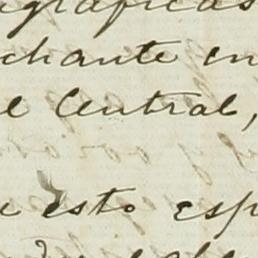 graficas
chante en
l Central,
e esto esp